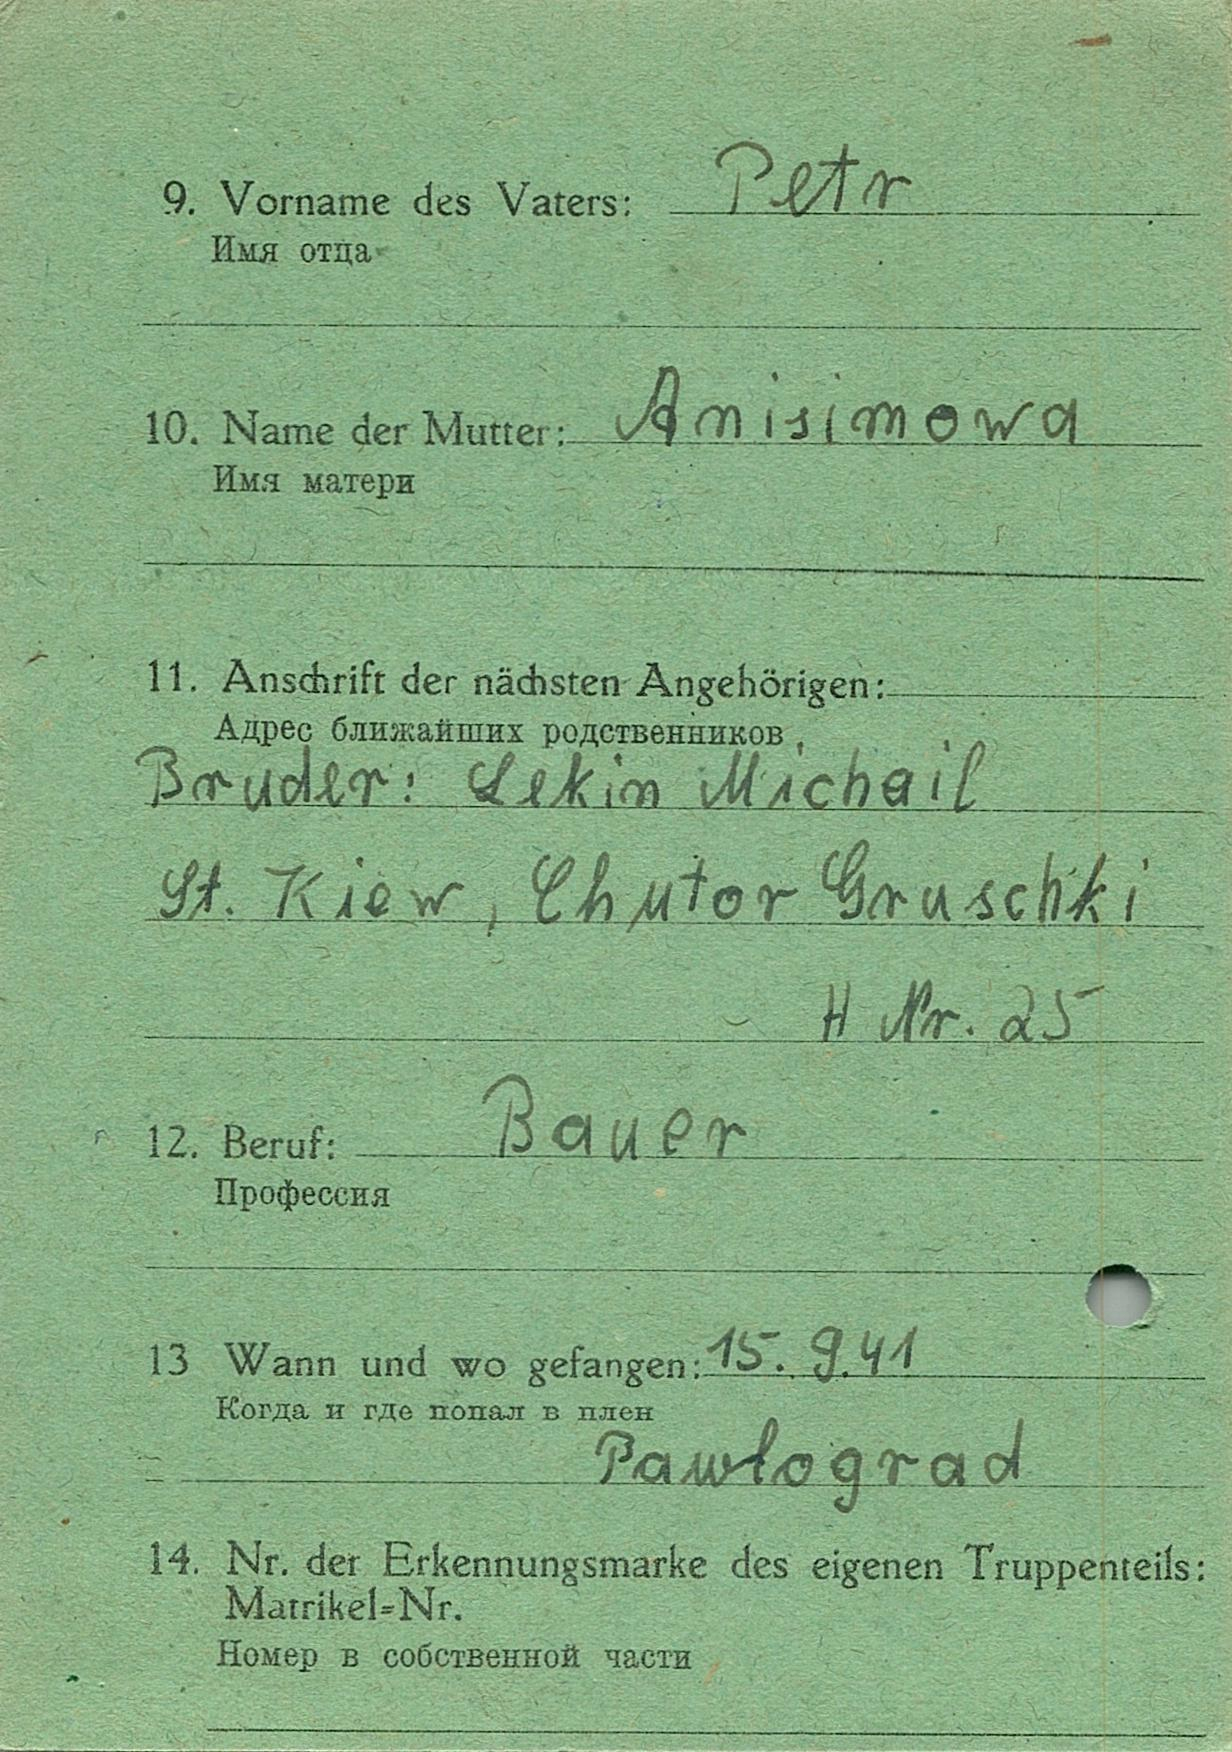 9. Vorname des Vaters: Petr
Имя отца
10. Name der Mutter: Anisimowa
Имя матери
11. Anschrift der nächsten Angehörigen:
Адрес ближайших родственников
Bruder: Lekin Michail
St. Kiew, Chutor Gruschki
H Nr. 25
12. Beruf: Bauer
Профессия
13 Wann und wo gefangen: 15. 9.41
Когда и где попал в плен
Pawlograd
14. Nr. der Erkennungsmarke des eigenen Truppenteils:
Matrikel-Nr.
Номер в собственной части